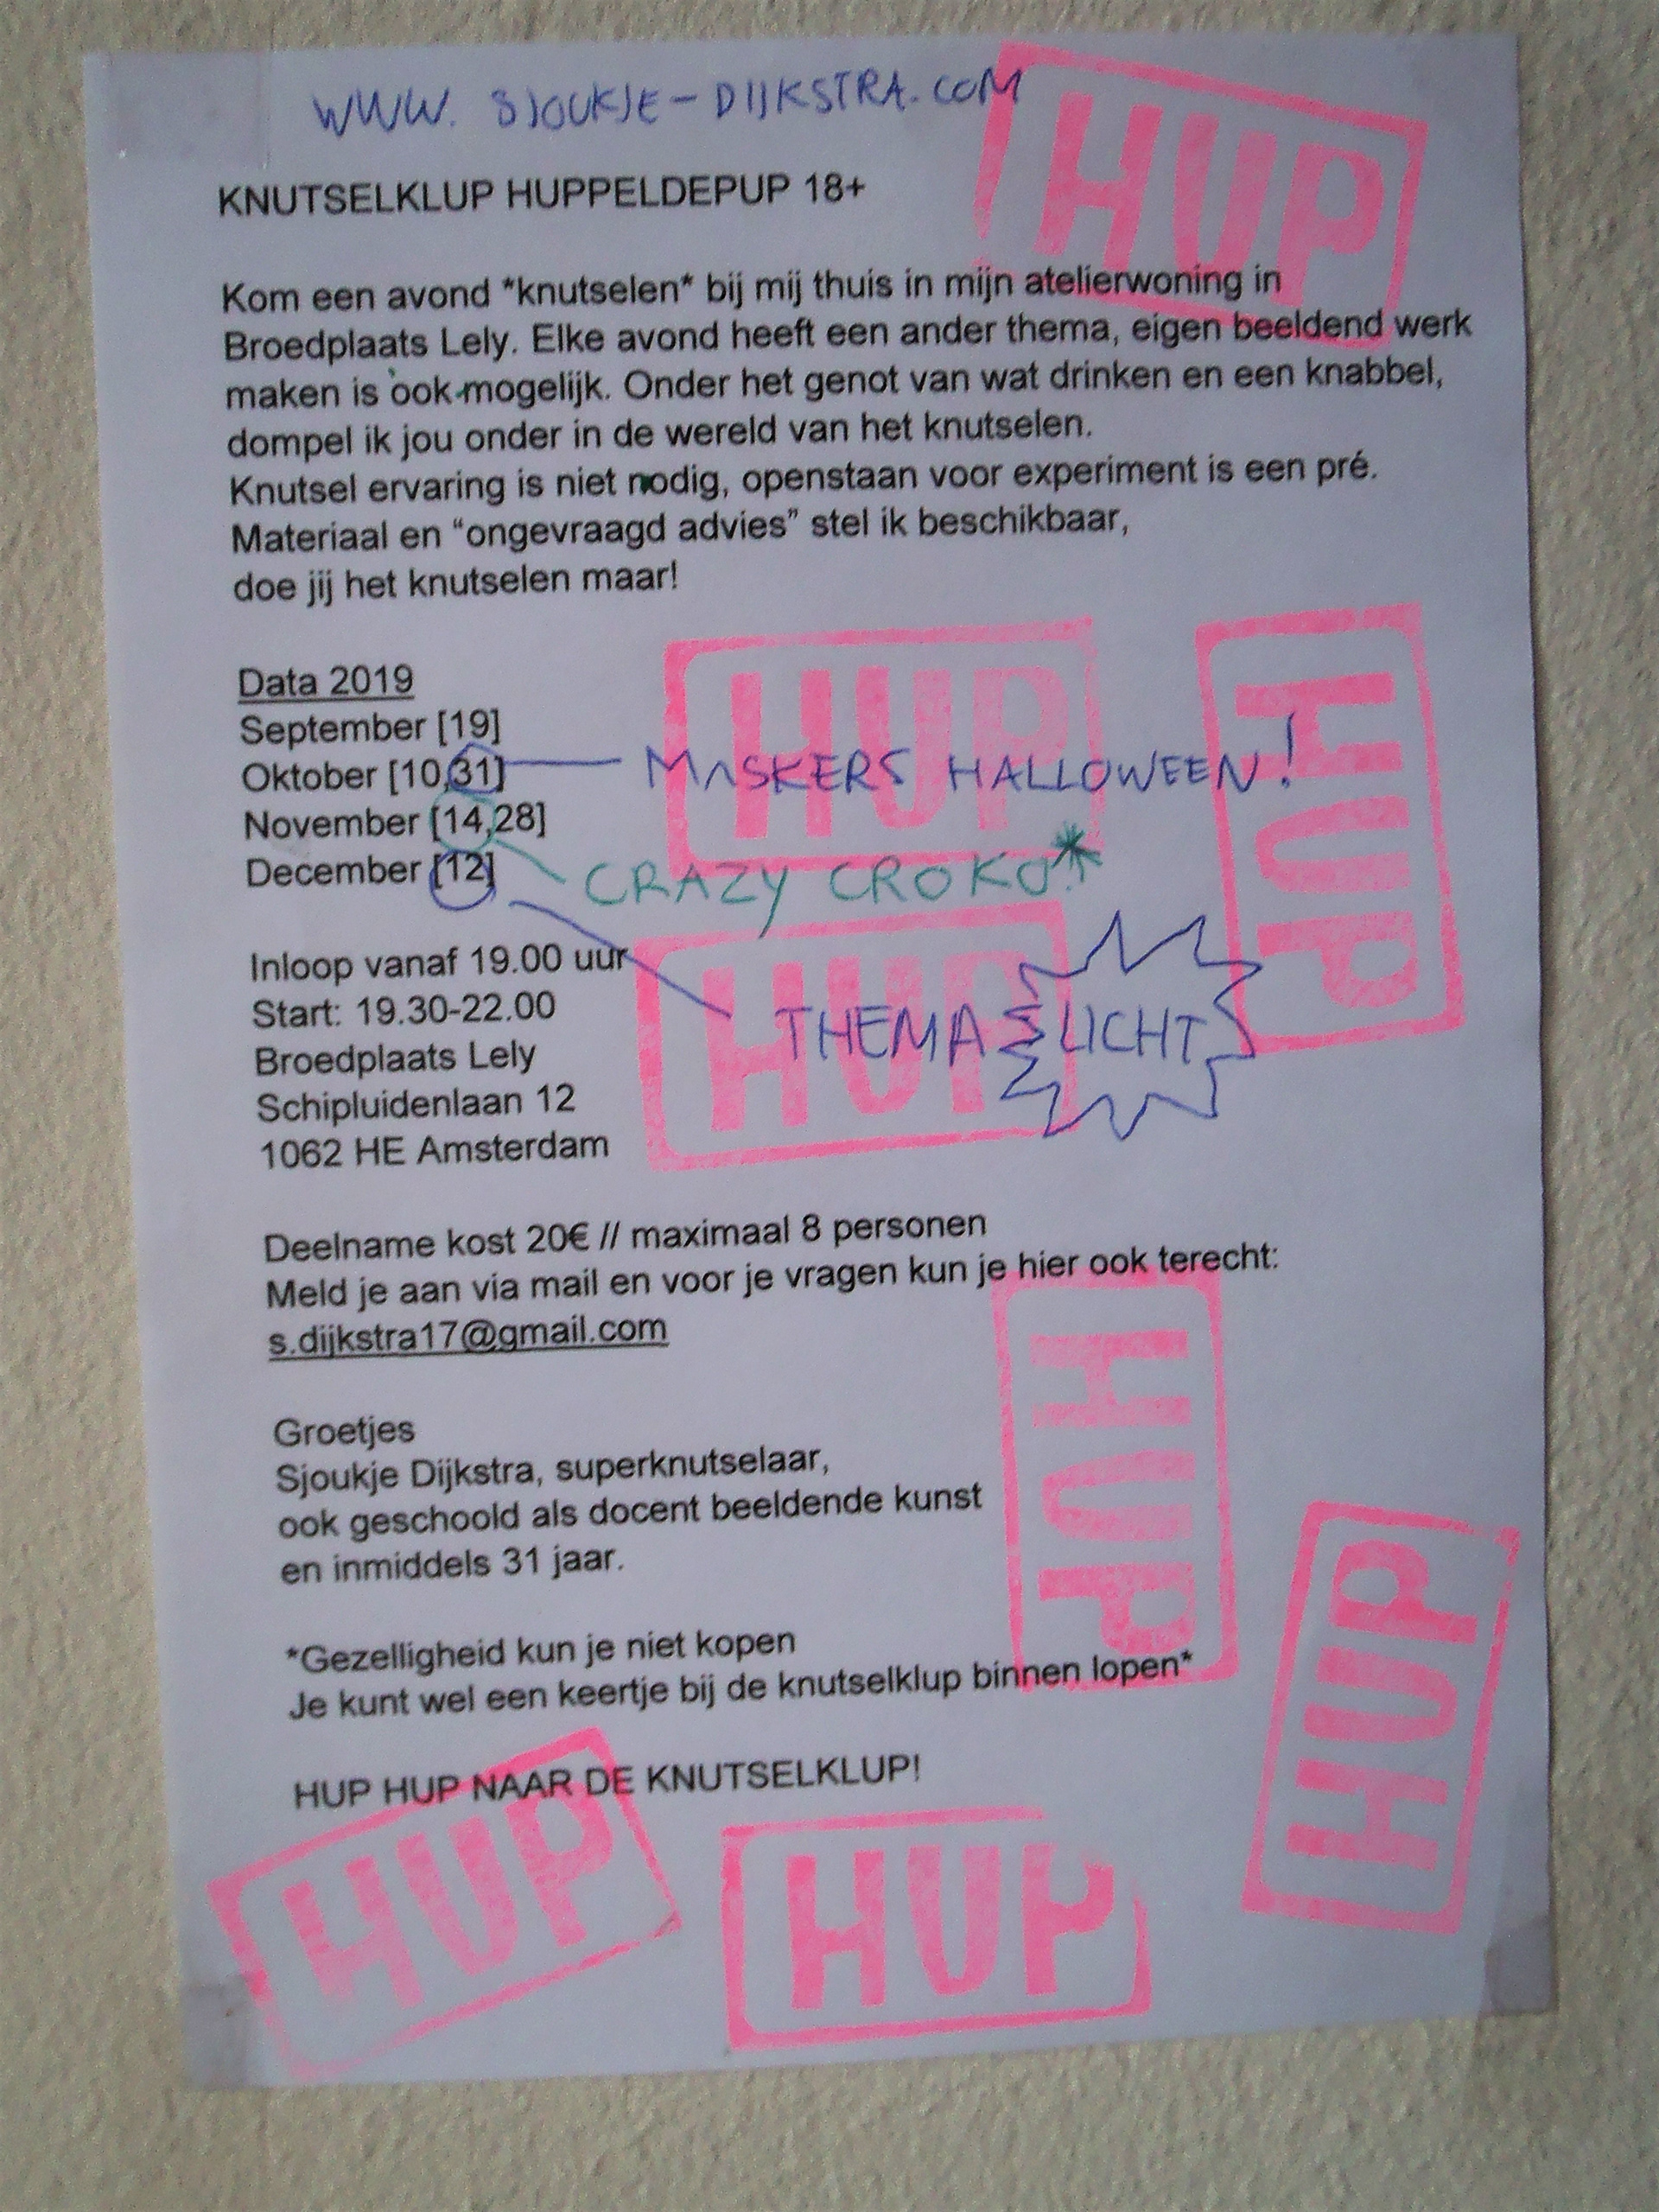 WWW. SJOUKJE-DIJKSTRA.COM
HUP
KNUTSELKLUP HUPPELDEPUP 18+
Kom een avond *knutselen* bij mij thuis in mijn atelierwoning in
Broedplaats Lely. Elke avond heeft een ander thema, eigen beeldend werk
maken is ook mogelijk. Onder het genot van wat drinken en een knabbel,
dompel ik jou onder in de wereld van het knutselen.
Knutsel ervaring is niet nodig, openstaan voor experiment is een pré.
Materiaal en “ongevraagd advies” stel ik beschikbaar,
doe jij het knutselen maar!
HUP
HUP
Data 2019
September [19]
Oktober [10,31]
MASKERS HALLOWEEN!
November [14,28]
CRAZY CROKO*
December [12]
THEMA LICHT
HUP
Inloop vanaf 19.00 uur
Start: 19.30-22.00
Broedplaats Lely
Schipluidenlaan 12
1062 HE Amsterdam
Deelname kost 20€ // maximaal 8 personen
Meld je aan via mail en voor je vragen kun je hier ook terecht:
s.dijkstra17@gmail.com
HUP
Groetjes
Sjoukje Dijkstra, superknutselaar,
ook geschoold als docent beeldende kunst
en inmiddels 31 jaar.
HUP
*Gezelligheid kun je niet kopen
Je kunt wel een keertje bij de knutselklup binnen lopen*
HUP HUP NAAR DE KNUTSELKLUP!
HUP
HUP